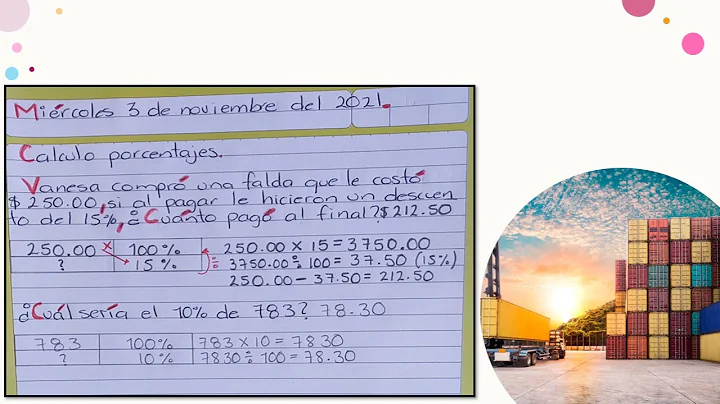 Miércoles 3 de noviembre del 2021.
Calculo porcentajes.
Vanesa compró una falda que le costó
$250.00, si al pagar le hicieron un descuen
to del 15%, ¿Cuánto pagó al final? $212.50
250.00 × 100% 250.00 × 15 = 3750.00
? 15% 3750.00 ÷ 100 = 37.50 (15%)
250.00 - 37.50 = 212.50
¿Cuál sería el 10% de 783? 78.30
783 100% 783 × 10 = 7830
? 10% 7830 ÷ 100 = 78.30